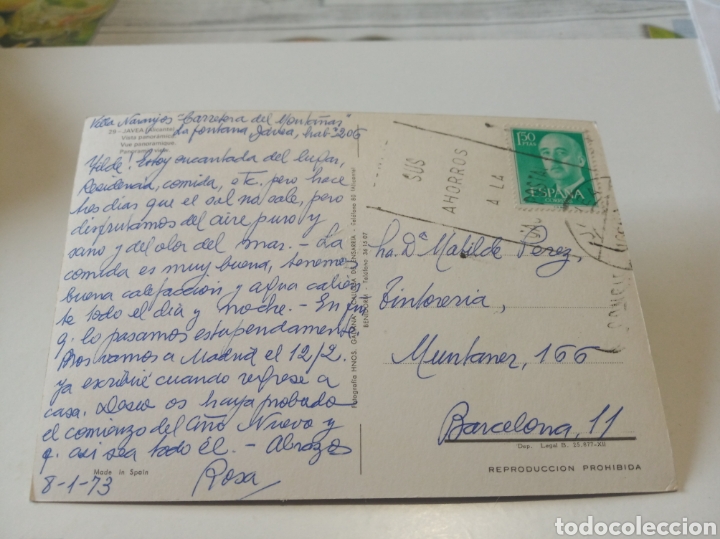 Villa Naranjos - Carretera del Montañar
La fontana, Javea, hab. 206
25 - JAVEA (Alicante)
Vista panorámica
Vue panoramique
Panoramic view
Yolde: Estoy encantada del lugar,
Residencia, comida, etc. pero hace
tres dias que el sol no sale, pero
disfrutamos del aire puro y
sano y del olor del mar. - La
comida es muy buena, tenemos
buena calefaccion y agua calien
te todo el dia y noche. - En fin
q. lo pasamos estupendamente
Nos vamos a Madrid el 12/2.
Ya escribiré cuando regrese a
casa. Deseo os haya probado
el comienzo del Año Nuevo y
q. asi sea todo él. - Abrazos
Rosa
8-1-73
Made in Spain
Fotografía HNOS. GALIANA
BENIDORM - Teléfono
SUS
AHORROS
A LA
1,50
PTAS
ESPAÑA
CORREOS
Sra. Dª Matilde Perez,
Tintoreria,
Muntaner, 166
Barcelona, 11
Dep. Legal B. 25.977-XII
REPRODUCCION PROHIBIDA
todocoleccion